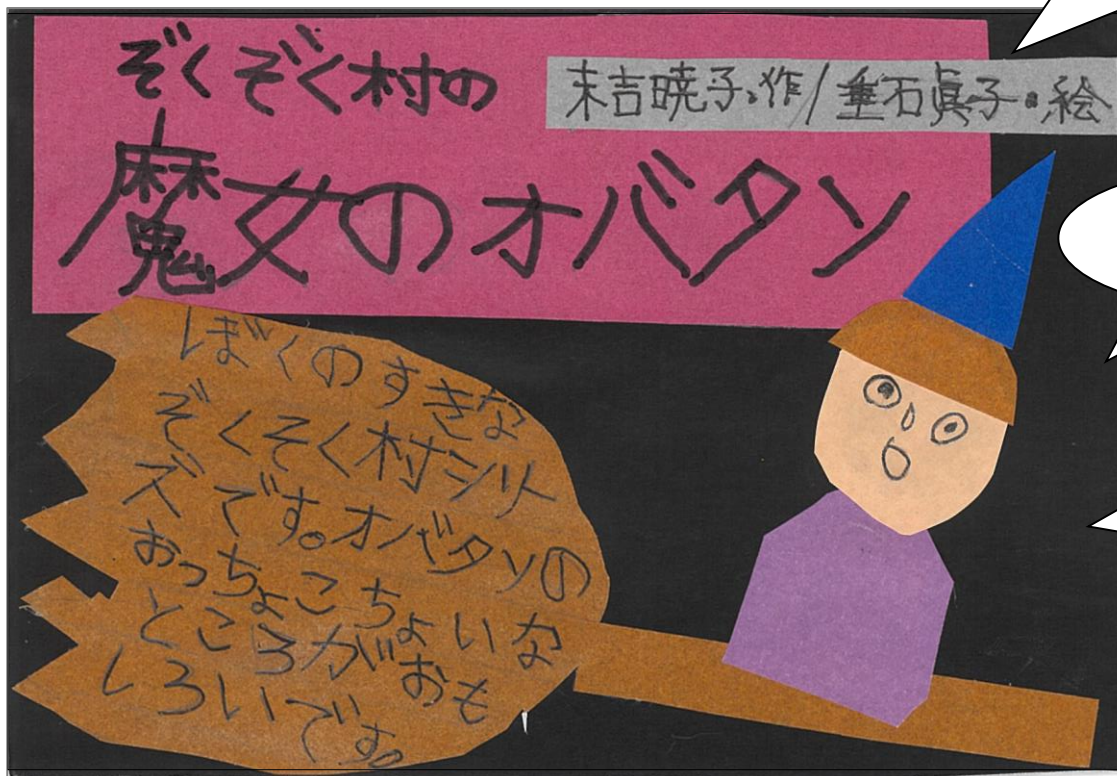 ぞくぞく村の
末吉暁子.作/垂石眞子・絵
魔女のオバタン
ぼくのすきな
ぞくそく村シリー
ズです。オバタンの
おっちょこちょいな
ところがおも
しろいです。